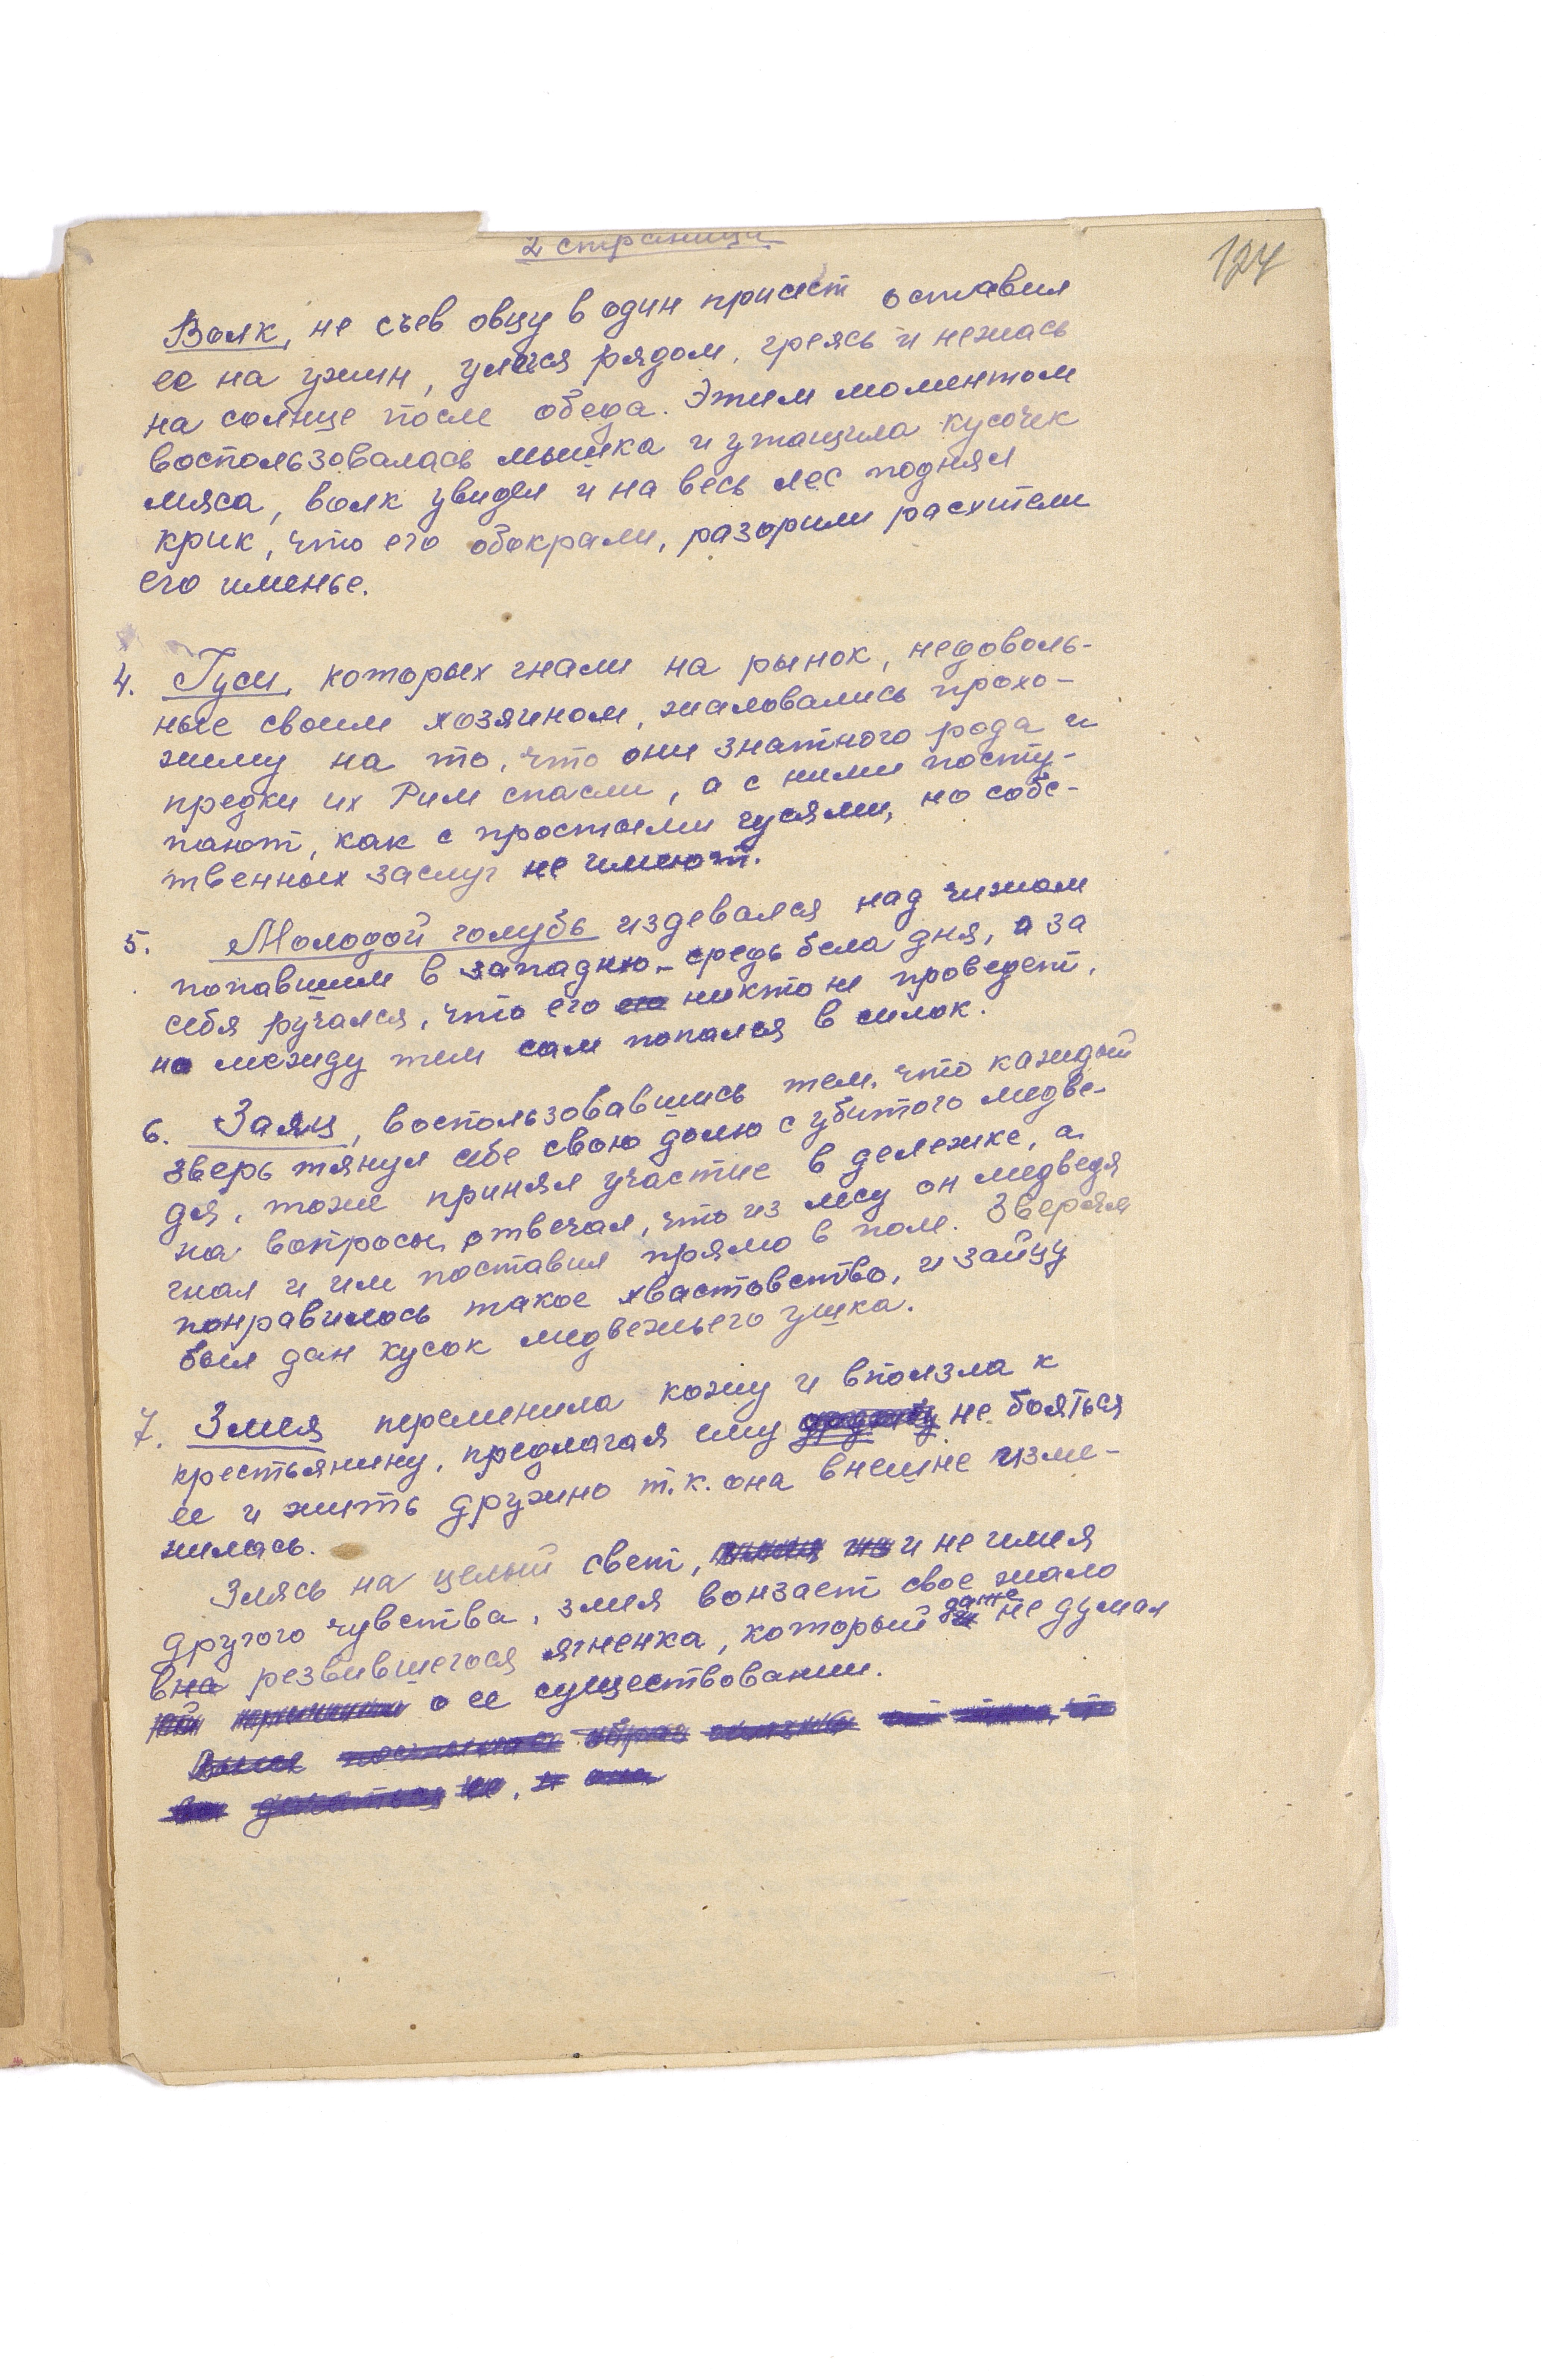 2 страница
124
Волк, не съев овцу в один присест оставил
ее на ужин, улегся рядом, греясь и нежась
на солнце после обеда. Этим моментом
воспользовалась мышка и утащила кусочек
мяса, волк увидел и на весь лес поднял
крик, что его обокрали, разорили расхители
его именье.
4. Гуси, которых гнали на рынок, недоволь-
ные своим хозяином, жаловались прохо-
жему на то, что они знатного рода и
предки их Рим спасли, а с ними посту-
пают, как с простыми гусями, но собс-
твенных заслуг не имеют.
5. Молодой голубь издевался над чижом
попавшим в западню средь бела дня, а за
себя ручался, что его никто не проведет,
но между тем сам попался в силок.
6. Заяц, воспользовавшись тем, что каждый
зверь тянул себе свою долю с убитого медве-
дя, тоже принял участие в дележке, а
на вопросы отвечал, что из лесу он медведя
гнал и им поставил прямо в поле. Зверям
понравилось такое хвастовство, и зайцу
был дан кусок медвежьего ушка.
7. Змея переменила кожу и вползла к
крестьянину, предлагая ему не бояться
ее и жить дружно т.к. она внешне изме-
нилась.
Злясь на целый свет, и не имея
другого чувства, змея вонзает свое жало
в резвившегося ягненка, который даже не думал
о ее существовании.